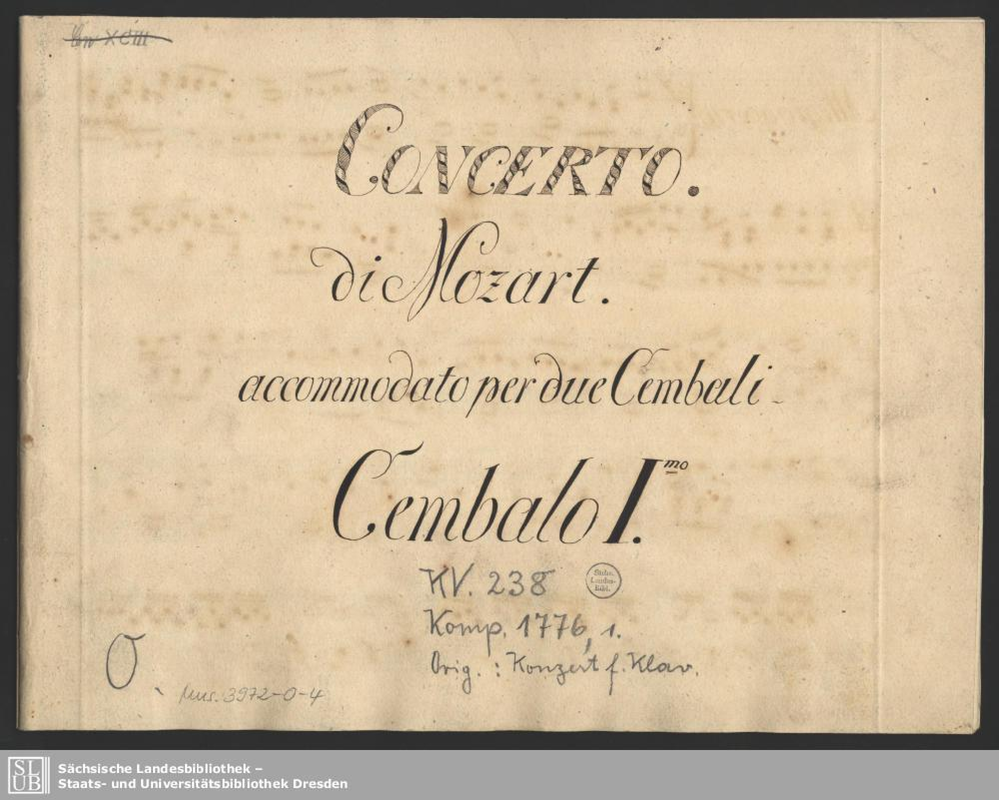 XCIII
CONCERTO.
di Mozart.
accommodato per due Cembali
Cembalo I.mo
KV. 238
Sächs.
Landes-
Bibl.
Komp. 1776, 1.
Orig.: Konzert f. Klav.
O.
Mus. 3972-O-4
SLUB
Sächsische Landesbibliothek –
Staats- und Universitätsbibliothek Dresden